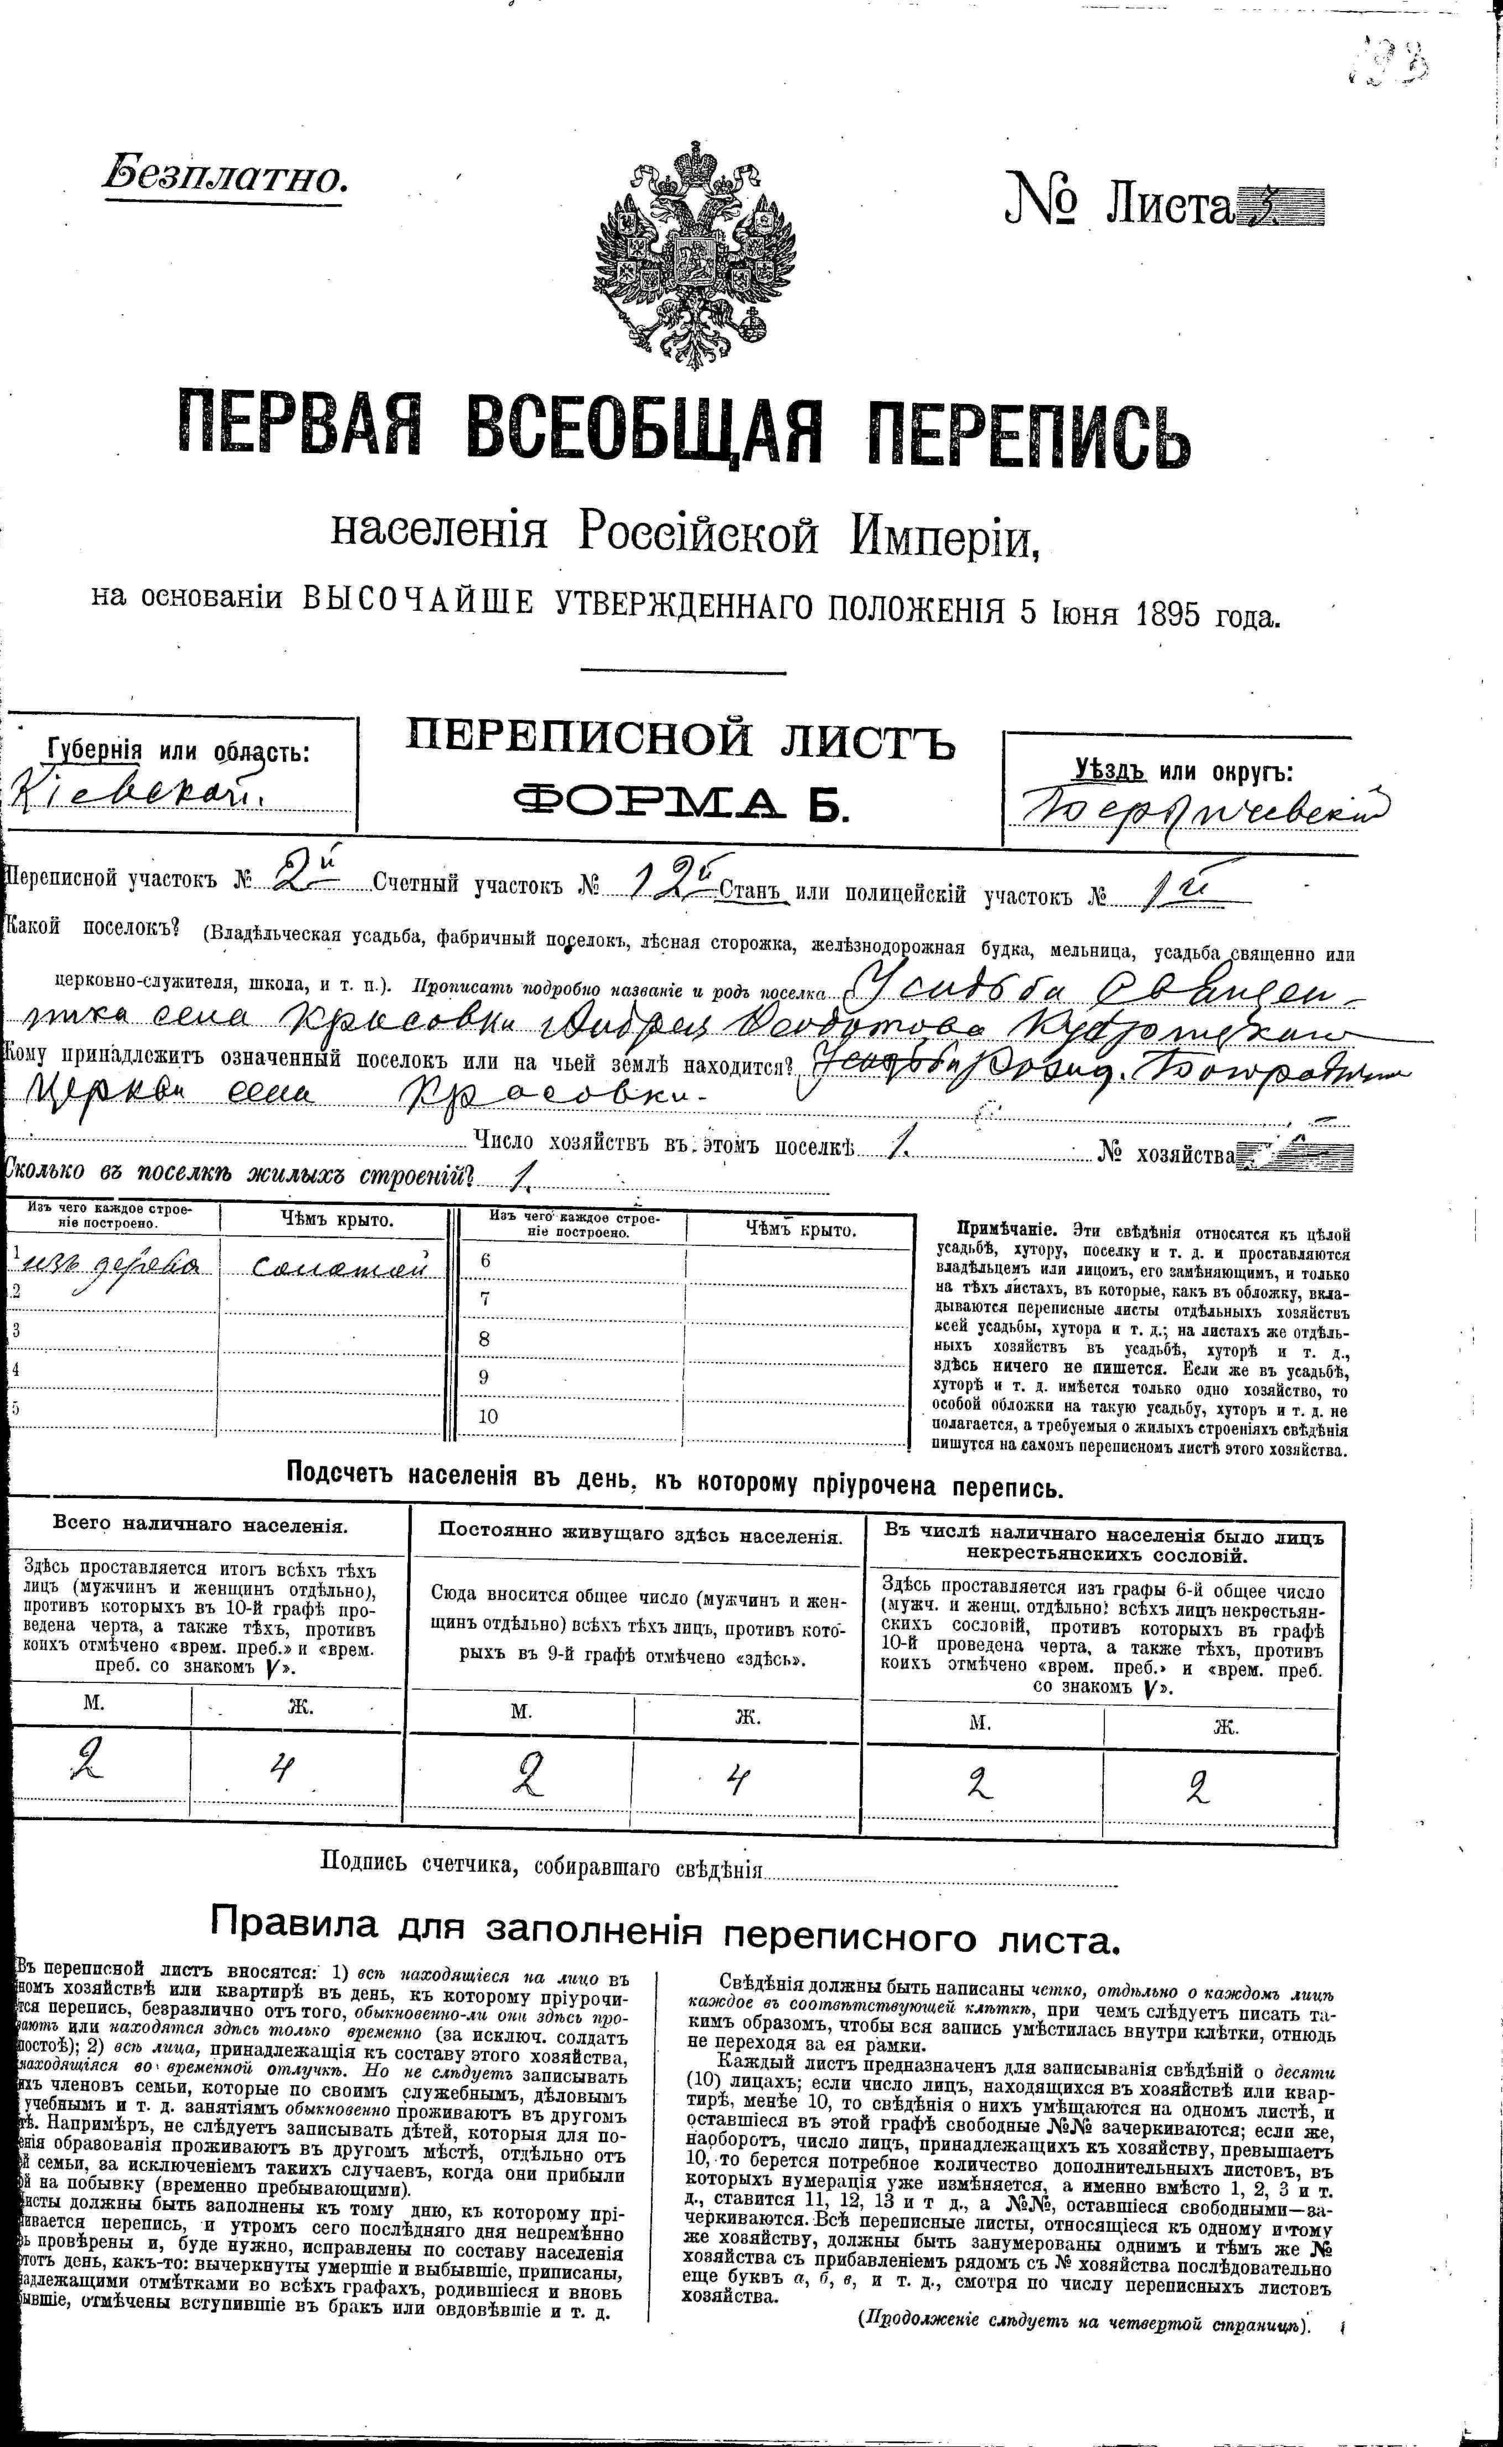 Безплатно.
№ Листа 3.
ПЕРВАЯ ВСЕОБЩАЯ ПЕРЕПИСЬ
населенія Россійской Имперіи,
на основаніи ВЫСОЧАЙШЕ УТВЕРЖДЕННАГО ПОЛОЖЕНІЯ 5 Іюня 1895 года.
Губернія или область:
Кіевской.
ПЕРЕПИСНОЙ ЛИСТЪ
ФОРМА Б.
Уѣздъ или округъ:
Бердичевскій
Переписной участокъ № 2й Счетный участокъ № 12й Станъ или полицейскій участокъ № 1й
Какой поселокъ? (Владѣльческая усадьба, фабричный поселокъ, лѣсная сторожка, желѣзнодорожная будка, мельница, усадьба священно или
церковно-служителя, школа, и т. п.). Прописать подробно названіе и родъ поселка Усадьба Священ-
ника села Красовки Андрея
Кому принадлежитъ означенный поселокъ или на чьей землѣ находится?
Церкви села Красовки.
Число хозяйствъ въ этомъ поселкѣ 1. № хозяйства
Сколько въ поселкѣ жилыхъ строеній? 1.
Изъ чего каждое строе-
ніе построено.
Чѣмъ крыто.
Изъ чего каждое строе-
ніе построено.
Чѣмъ крыто.
1 изъ дерева соломой 6
2 7
3 8
4 9
5 10
Примѣчаніе. Эти свѣдѣнія относятся къ цѣлой
усадьбѣ, хутору, поселку и т. д. и проставляются
владѣльцемъ или лицомъ, его замѣняющимъ, и только
на тѣхъ листахъ, въ которые, какъ въ обложку, вкла-
дываются переписные листы отдѣльныхъ хозяйствъ
всей усадьбы, хутора и т. д.; на листахъ же отдѣль-
ныхъ хозяйствъ въ усадьбѣ, хуторѣ и т. д.,
здѣсь ничего не пишется. Если же въ усадьбѣ,
хуторѣ и т. д. имѣется только одно хозяйство, то
особой обложки на такую усадьбу, хуторъ и т. д. не
полагается, а требуемыя о жилыхъ строеніяхъ свѣдѣнія
пишутся на самомъ переписномъ листѣ этого хозяйства.
Подсчетъ населенія въ день, къ которому пріурочена перепись.
Всего наличнаго населенія.
Здѣсь проставляется итогъ всѣхъ тѣхъ
лицъ (мужчинъ и женщинъ отдѣльно),
противъ которыхъ въ 10-й графѣ про-
ведена черта, а также тѣхъ, противъ
коихъ отмѣчено «врем. преб.» и «врем.
преб. со знакомъ V».
Постоянно живущаго здѣсь населенія.
Сюда вносится общее число (мужчинъ и жен-
щинъ отдѣльно) всѣхъ тѣхъ лицъ, противъ кото-
рыхъ въ 9-й графѣ отмѣчено «здѣсь».
Въ числѣ наличнаго населенія было лицъ
некрестьянскихъ сословій.
Здѣсь проставляется изъ графы 6-й общее число
(мужч. и женщ. отдѣльно) всѣхъ лицъ некрестьян-
скихъ сословій, противъ которыхъ въ графѣ
10-й проведена черта, а также тѣхъ, противъ
коихъ отмѣчено «врем. преб.» и «врем. преб.
со знакомъ V».
М. Ж. М. Ж. М. Ж.
2 4 2 4 2 2
Подпись счетчика, собиравшаго свѣдѣнія
Правила для заполненія переписного листа.
Въ переписной листъ вносятся: 1) всѣ находящіеся на лицо въ
номъ хозяйствѣ или квартирѣ въ день, къ которому пріурочи-
тся перепись, безразлично отъ того, обыкновенно-ли они здѣсь про-
ають или находятся здѣсь только временно (за исключ. солдатъ
постоѣ); 2) всѣ лица, принадлежащія къ составу этого хозяйства,
находящіяся во временной отлучкѣ. Но не слѣдуетъ записывать
хъ членовъ семьи, которые по своимъ служебнымъ, дѣловымъ
учебнымъ и т. д. занятіямъ обыкновенно проживаютъ въ другомъ
тѣ. Напримѣръ, не слѣдуетъ записывать дѣтей, которыя для по-
енія образованія проживаютъ въ другомъ мѣстѣ, отдѣльно отъ
й семьи, за исключеніемъ такихъ случаевъ, когда они прибыли
й на побывку (временно пребывающими).
исты должны быть заполнены къ тому дню, къ которому прі-
ивается перепись, и утромъ сего послѣдняго дня непремѣнно
ь провѣрены и, буде нужно, исправлены по составу населенія
тотъ день, какъ-то: вычеркнуты умершіе и выбывшіе, приписаны,
адлежащими отмѣтками во всѣхъ графахъ, родившіеся и вновь
ывшіе, отмѣчены вступившіе въ бракъ или овдовѣвшіе и т. д.
Свѣдѣнія должны быть написаны четко, отдѣльно о каждомъ лицѣ
каждое въ соотвѣтствующей клѣткѣ, при чемъ слѣдуетъ писать та-
кимъ образомъ, чтобы вся запись умѣстилась внутри клѣтки, отнюдь
не переходя за ея рамки.
Каждый листъ предназначенъ для записыванія свѣдѣній о десяти
(10) лицахъ; если число лицъ, находящихся въ хозяйствѣ или квар-
тирѣ, менѣе 10, то свѣдѣнія о нихъ умѣщаются на одномъ листѣ, и
оставшіеся въ этой графѣ свободные №№ зачеркиваются; если же,
наоборотъ, число лицъ, принадлежащихъ къ хозяйству, превышаетъ
10, то берется потребное количество дополнительныхъ листовъ, въ
которыхъ нумерація уже измѣняется, а именно вмѣсто 1, 2, 3 и т.
д., ставится 11, 12, 13 и т д., а №№, оставшіеся свободными—за-
черкиваются. Всѣ переписные листы, относящіеся къ одному и тому
же хозяйству, должны быть занумерованы однимъ и тѣмъ же №
хозяйства съ прибавленіемъ рядомъ съ № хозяйства послѣдовательно
еще буквъ а, б, в, и т. д., смотря по числу переписныхъ листовъ
хозяйства.
(Продолженіе слѣдуетъ на четвертой страницѣ).